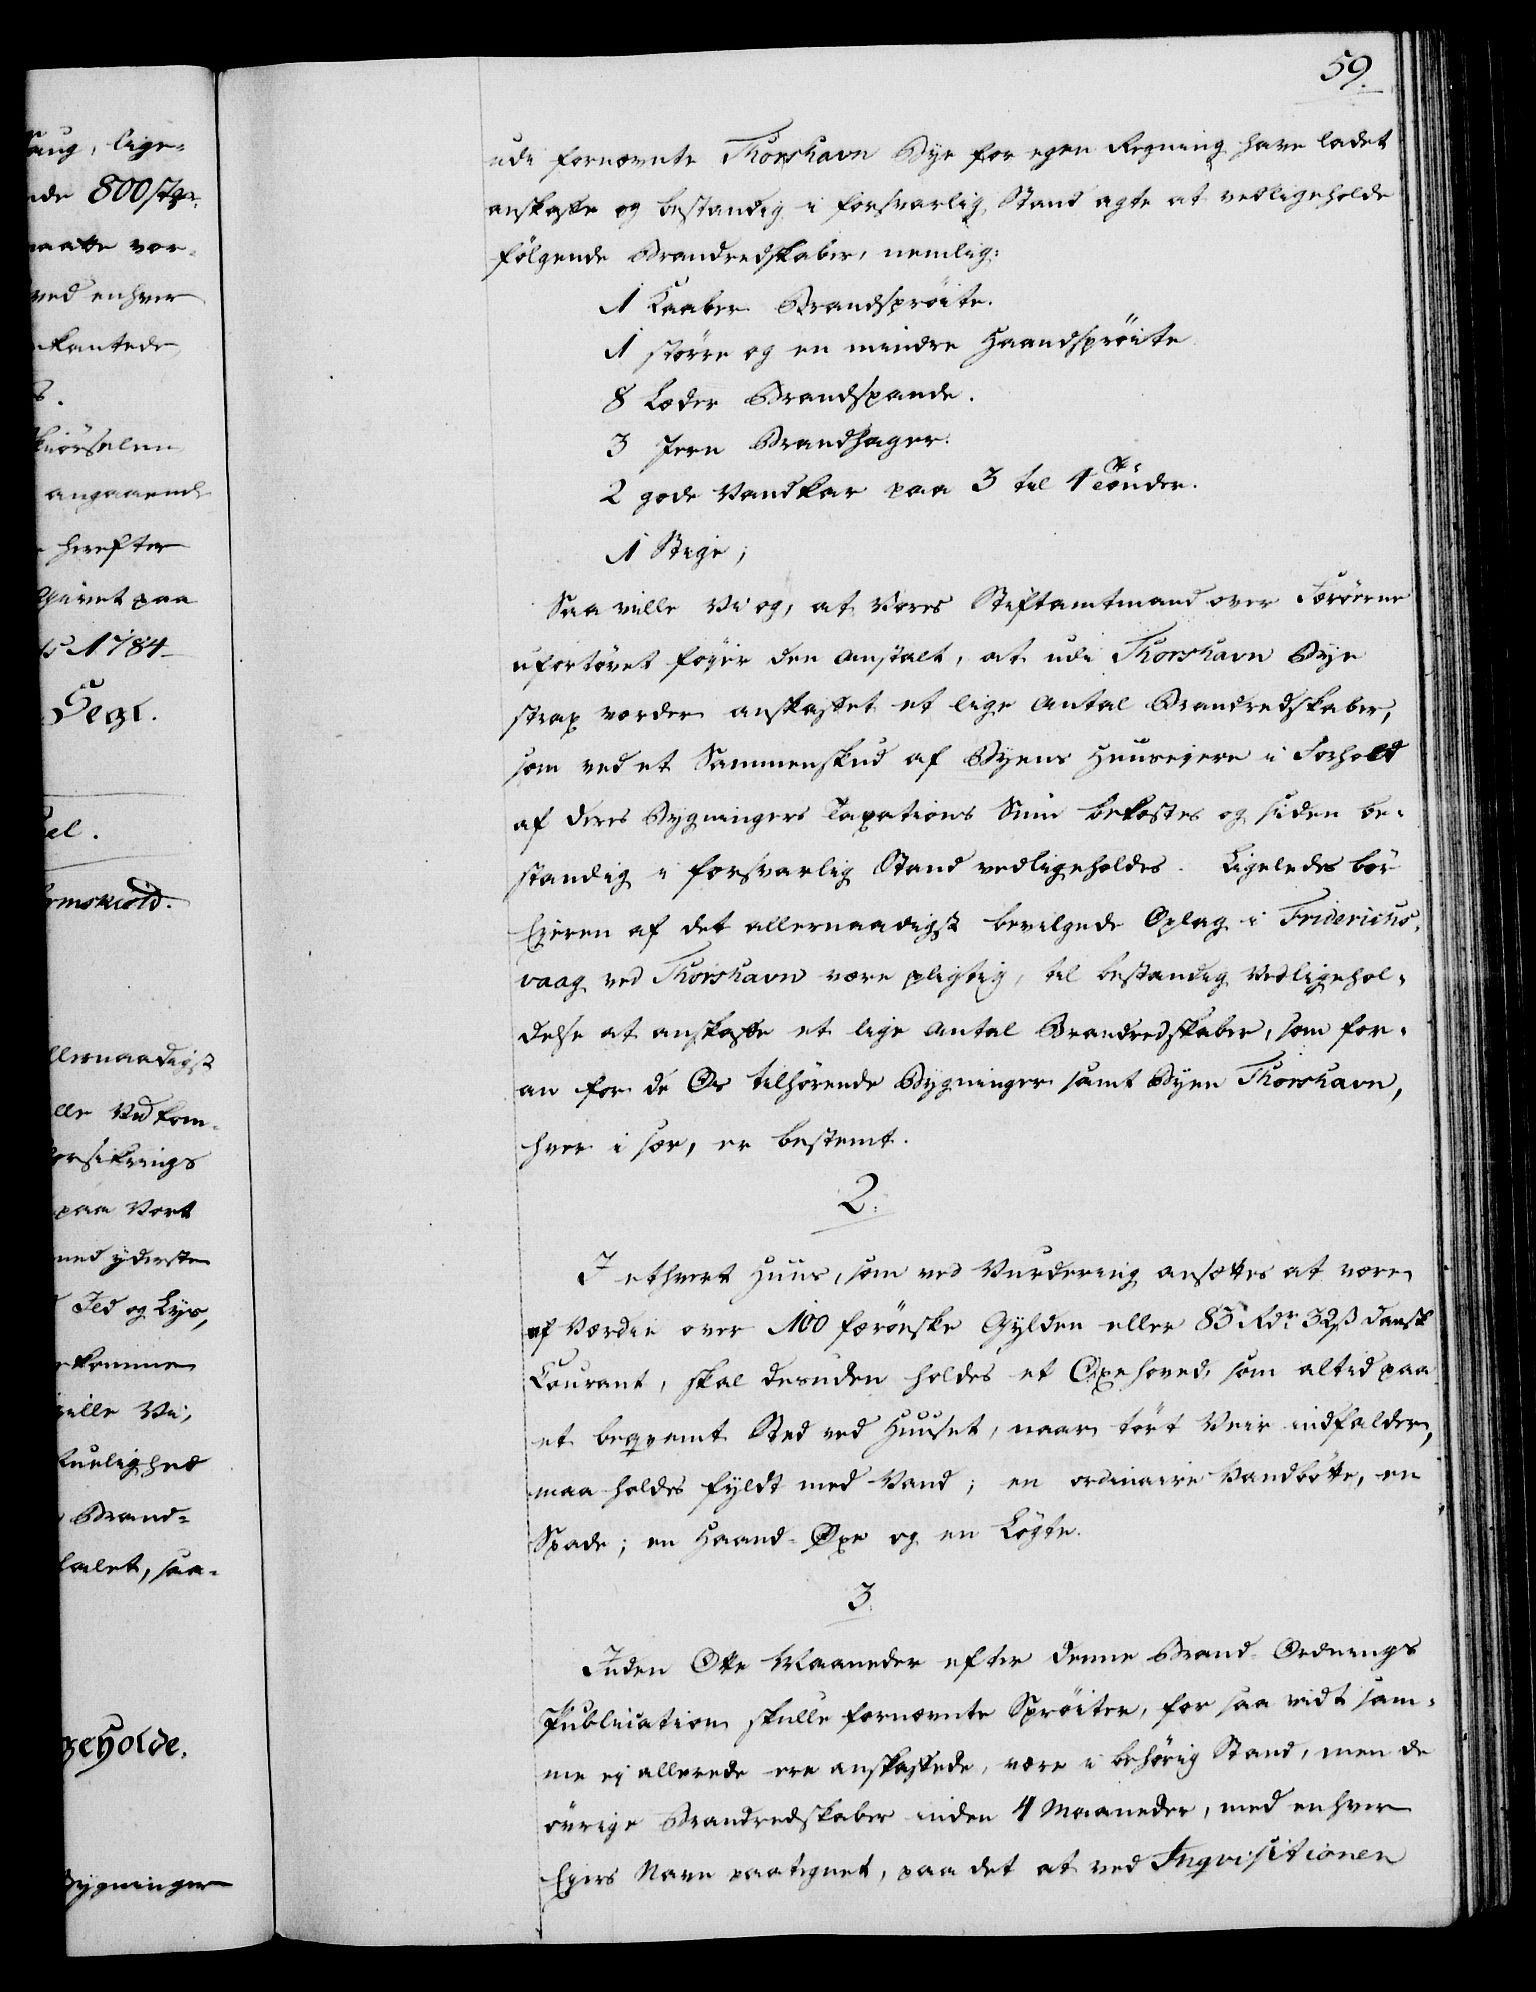 59.
udi fornævnte Thorshavn Bye for egen Regning have ladet
anskaffe og bestandig i forsvarlig Stand agte at vedligeholde
følgende Brandredskaber, nemlig:
1 Kaaber Brandsprøite.
1 større og en mindre Haandsprøite
8 Læder Brandspande.
3 Jern Brandhager.
2 gode Vandkar paa 3 til 4 Tønder.
1 Stige;
Saa ville Vi og, at Vores Stiftamtmand over Færøerne
ufortøvet føyer den Anstalt, at udi Thorshavn Bye
strax vorder anskaffet et lige Antal Brandredskaber,
som ved et Sammenskud af Byens Huuseiere i Forhold
af deres Bygningers Taxations Sum bekostes og siden be-
standig i forsvarlig Stand vedligeholdes. Ligeledes bør
Eieren af det allernaadigst bevilgede Oplag i Friderichs-
vaag ved Thorshavn være pligtig, til bestandig Vedligehol-
delse at anskaffe et lige Antal Brandredskaber, som for-
an for de Os tilhørende Bygninger samt Byen Thorshavn,
hver i sær, er bestemt.
2.
I ethvert Huus, som ved Vurdering ansættes at være
af Værdie over 100 færøeske Gylden eller 83 Rdr 32 ß dansk
Courant, skal desuden holdes et Oxehoved, som altid paa
et beqvemt Sted ved Huuset, naar tørt Veir indfalder,
maa holdes fyldt med Vand; en ordinaire Vandbøtte, en
Spade; en Haand-Øxe og en Løgte.
3.
Inden Otte Maaneder efter denne Brand-Ordnings
Publication skulle fornævnte Sprøiter, for saa vidt sam-
me ej allerede ere anskaffede, være i behørig Stand, men de
øvrige Brandredskaber inden 4 Maaneder, med enhver
Ejers Navn paategnet, paa det at ved Inqvisitionen